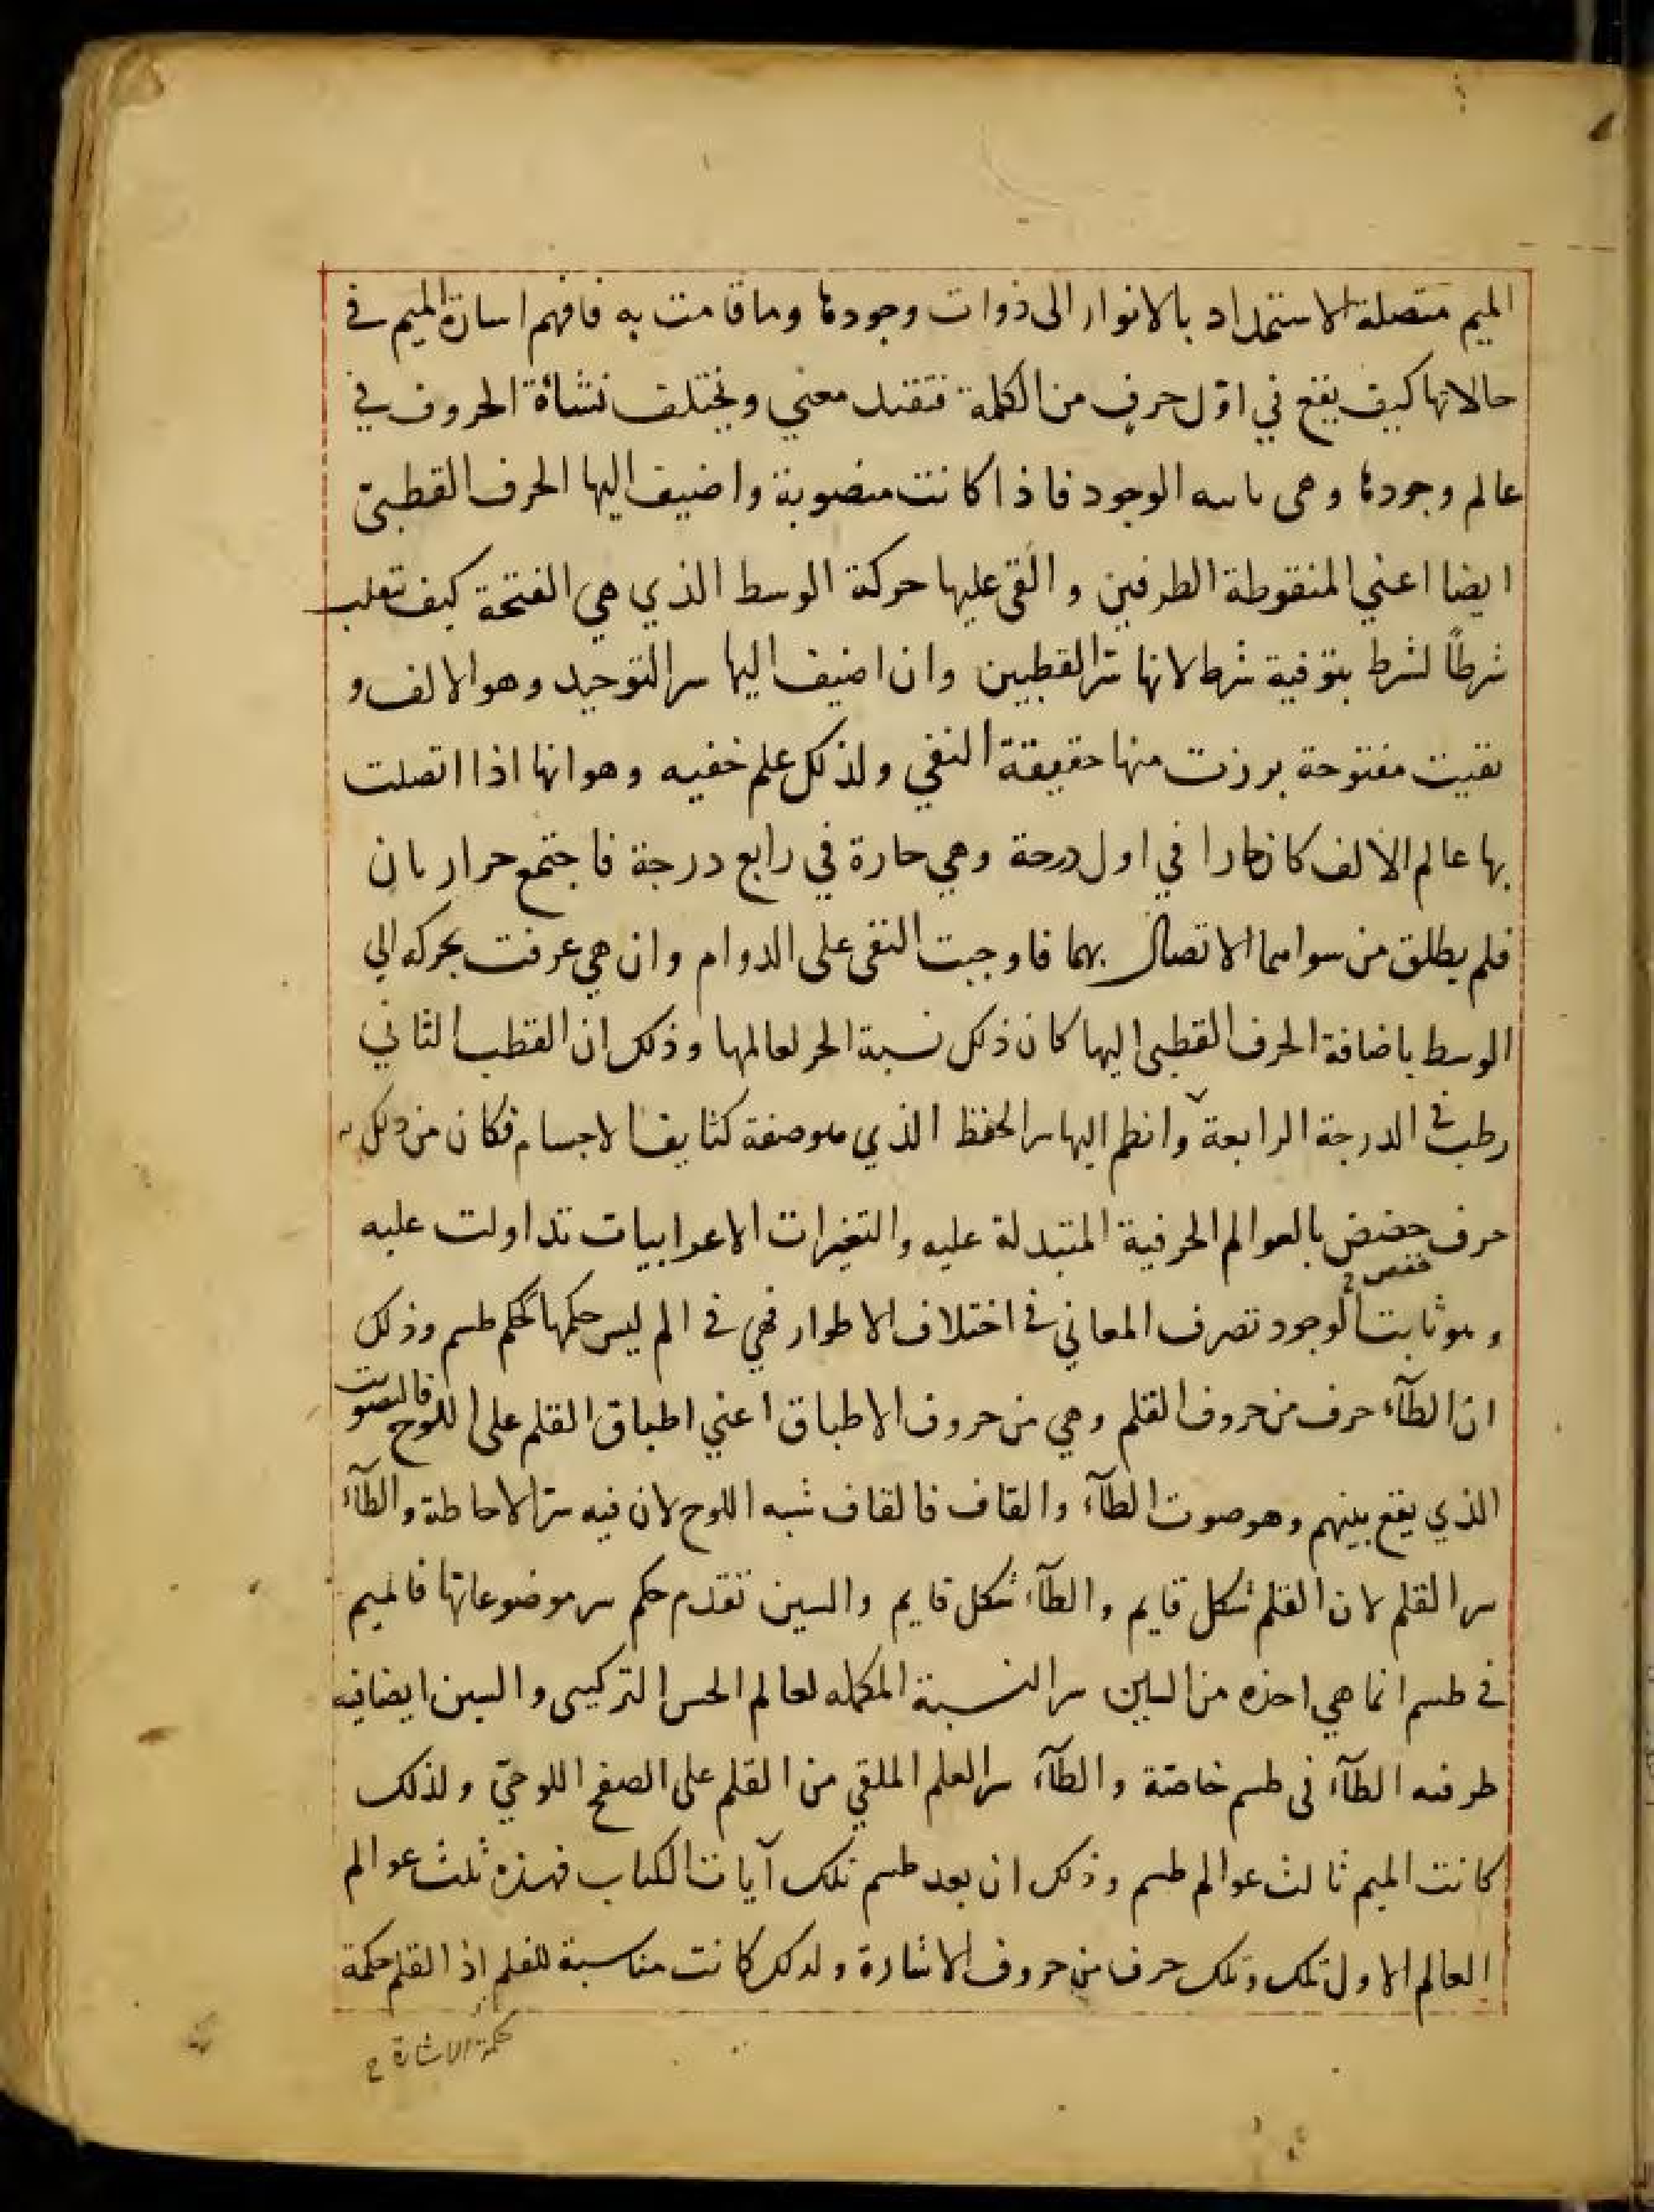 الميم متصلة الاستمداد بالانوار الى ذوات وجودها وما قامت به فافهم اسارة الميم في
حالاتها كيف يقع في اوّل حرفٍ من الكلمة فتقتد معني ويختلف نشأة الحروف في
عالم وجودها وهى الوجود فاذا كانت منصوبة واضيف اليها الحرف القطبىّ
ايضا اعني المنقوطة الطرفين والقى عليها حركة الوسط الذي هي الفتحة كيف تعلب
شرطاً لشرط بتوفية شرط لانها سرّ القطبين وان اضيف اليها سر التوحيد وهو الالف و
بقيت مفتوحة برزت منها حقيقة النفي ولذلك علم خفيه وهو انها اذا اتصلت
بها عالم الالف كان حارا في اول درجة وهي حارة في رابع درجة فاجتمع حراربان
فلم يطلق من سواهما الاتصال بهما فاوجبت النفى على الدوام وان هي عرفت بحركه الي
الوسط باضافة الحرف القطبى اليها كان ذلك نسبة الحر لعالمها وذلك ان القطب الثاني
رطب في الدرجة الرابعة وانظم اليها سر الحفظ الذي هو صفة كثايف الاجسام فكان من ذلك
حرف حضض بالعوالم الحرفية المتبدلة عليه والتغيرات الاعرابيات تداولت عليه
خفض
وهو ثابت الوجود تصرف المعاني في اختلاف الاطوار فهي في الم ليس حكمها كحكم طسم وذلك
ان الطآء حرف من حروف القلم وهي من حروف الاطباق اعني اطباق القلم على اللوح فالصوت
الذي يقع بينهم وهو صوت الطآء والقاف فالقاف شبه اللوح لان فيه سرّ الاحاطة والطآء
سر القلم لان القلم شكل قايم والطآء شكل قايم والسين تقدم حكم سر موضوعاتها فالميم
في طسم انما هي اخذه من السين سر النسبة المكمله لعالم الحس التركيبى والسين ايضا فيه
طرفيه الطآء فى طسم خاصّة والطآء سر العلم الملقي من القلم على الصفح اللوحيّ ولذلك
كانت الميم ثالث عوالم طسم وذلك ان بعد طسم تلك آيات الكتاب فهذه ثلث عوالم
العالم الاول تلك وتلك حرف من حروف الاشارة ولذلك كانت مناسبة للقلم اذ القلم حكمة
حكمة الاشارة